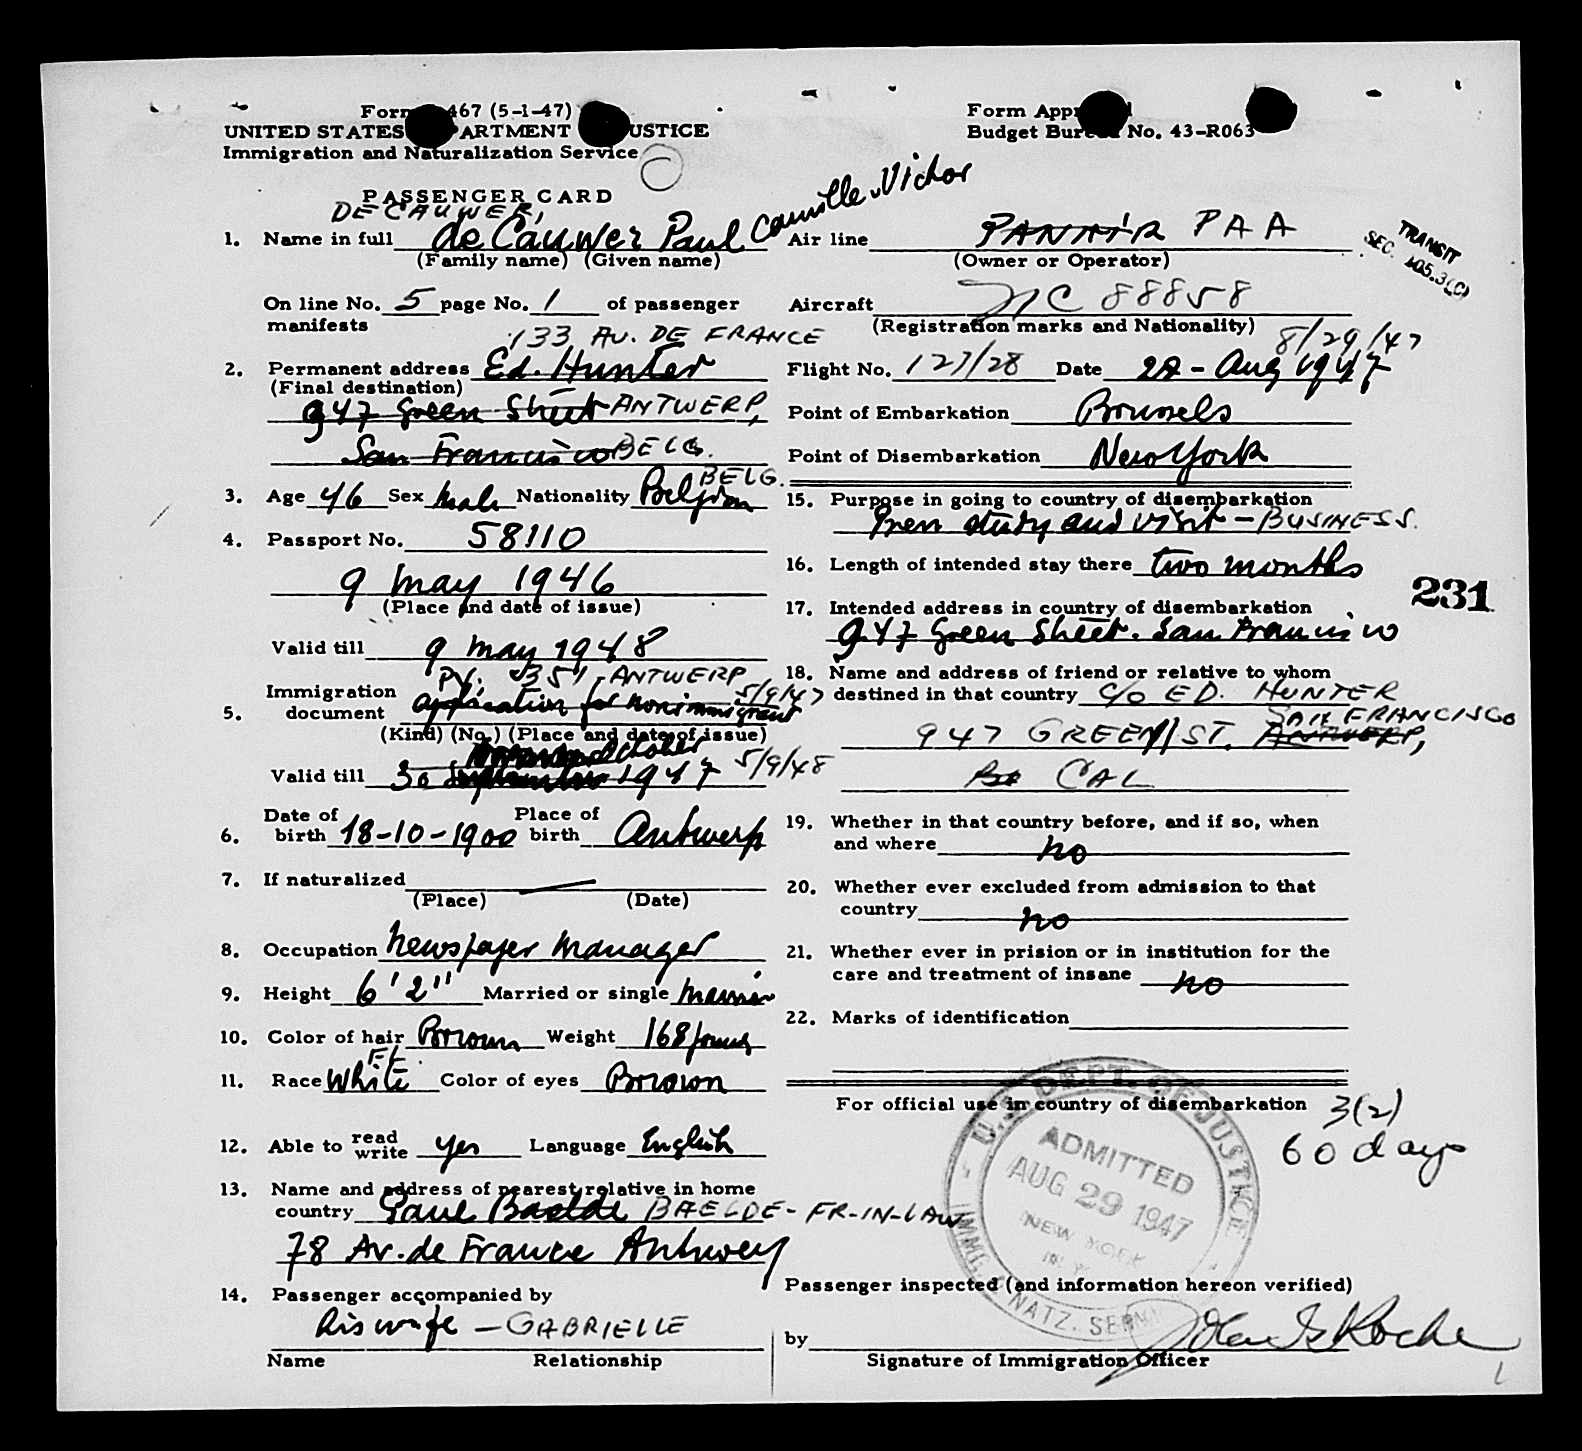 Form 467 (5-1-47)
UNITED STATES ARTMENT USTICE
Immigration and Naturalization Service
Form App
Budget Bur No. 43-R063
PASSENGER CARD
DE CAUWER,
1. Name in full de Cauwer Paul Camille Victor
(Family name) (Given name)
On line No. 5 page No. 1 of passenger
manifests
133 AV. DE FRANCE
2. Permanent address Ed. Hunter
(Final destination)
947 Green Street ANTWERP,
San Francisco BELG.
BELG.
3. Age 46 Sex male Nationality Belgian
4. Passport No. 58110
9 may 1946
(Place and date of issue)
Valid till 9 may 1948
PV. 351, ANTWERP 5/9/47
5. Immigration document application for nonimmigrant
(Kind) (No.) (Place and date of issue)
October
Valid till 30 1947 5/9/48
6. Date of birth 18-10-1900 Place of birth Antwerp
7. If naturalized
(Place) (Date)
8. Occupation Newspaper Manager
9. Height 6'2" Married or single
10. Color of hair Brown Weight 168 pounds
11. Race White Color of eyes Brown
12. Able to read write yes Language English
13. Name and address of nearest relative in home
country Paul Baelde BAELDE - FR-IN-LAW
78 Av. de France Antwerp
14. Passenger accompanied by
his wife - GABRIELLE
Name Relationship
Air line PANAIR PAA
(Owner or Operator)
TRANSIT
SEC. 105.3(C)
Aircraft NC 88858
(Registration marks and Nationality)
8/29/47
Flight No. 127/28 Date 28 - Aug 1947
Point of Embarkation Brussels
Point of Disembarkation New York
15. Purpose in going to country of disembarkation
Press study and visit - BUSINESS.
16. Length of intended stay there two months
231
17. Intended address in country of disembarkation
947 Green Street. San Francisco
18. Name and address of friend or relative to whom
destined in that country C/O ED. HUNTER
947 GREEN ST. ANTWERP, SAN FRANCISCO
CAL
19. Whether in that country before, and if so, when
and where no
20. Whether ever excluded from admission to that
country no
21. Whether ever in prision or in institution for the
care and treatment of insane no
22. Marks of identification
For official use in country of disembarkation 3(2)
60 days
U.S. DEPT. OF JUSTICE
ADMITTED
AUG 29 1947
NEW YORK
N.Y.
IMMG. & NATZ. SERV
Passenger inspected (and information hereon verified)
by Roche
Signature of Immigration Officer